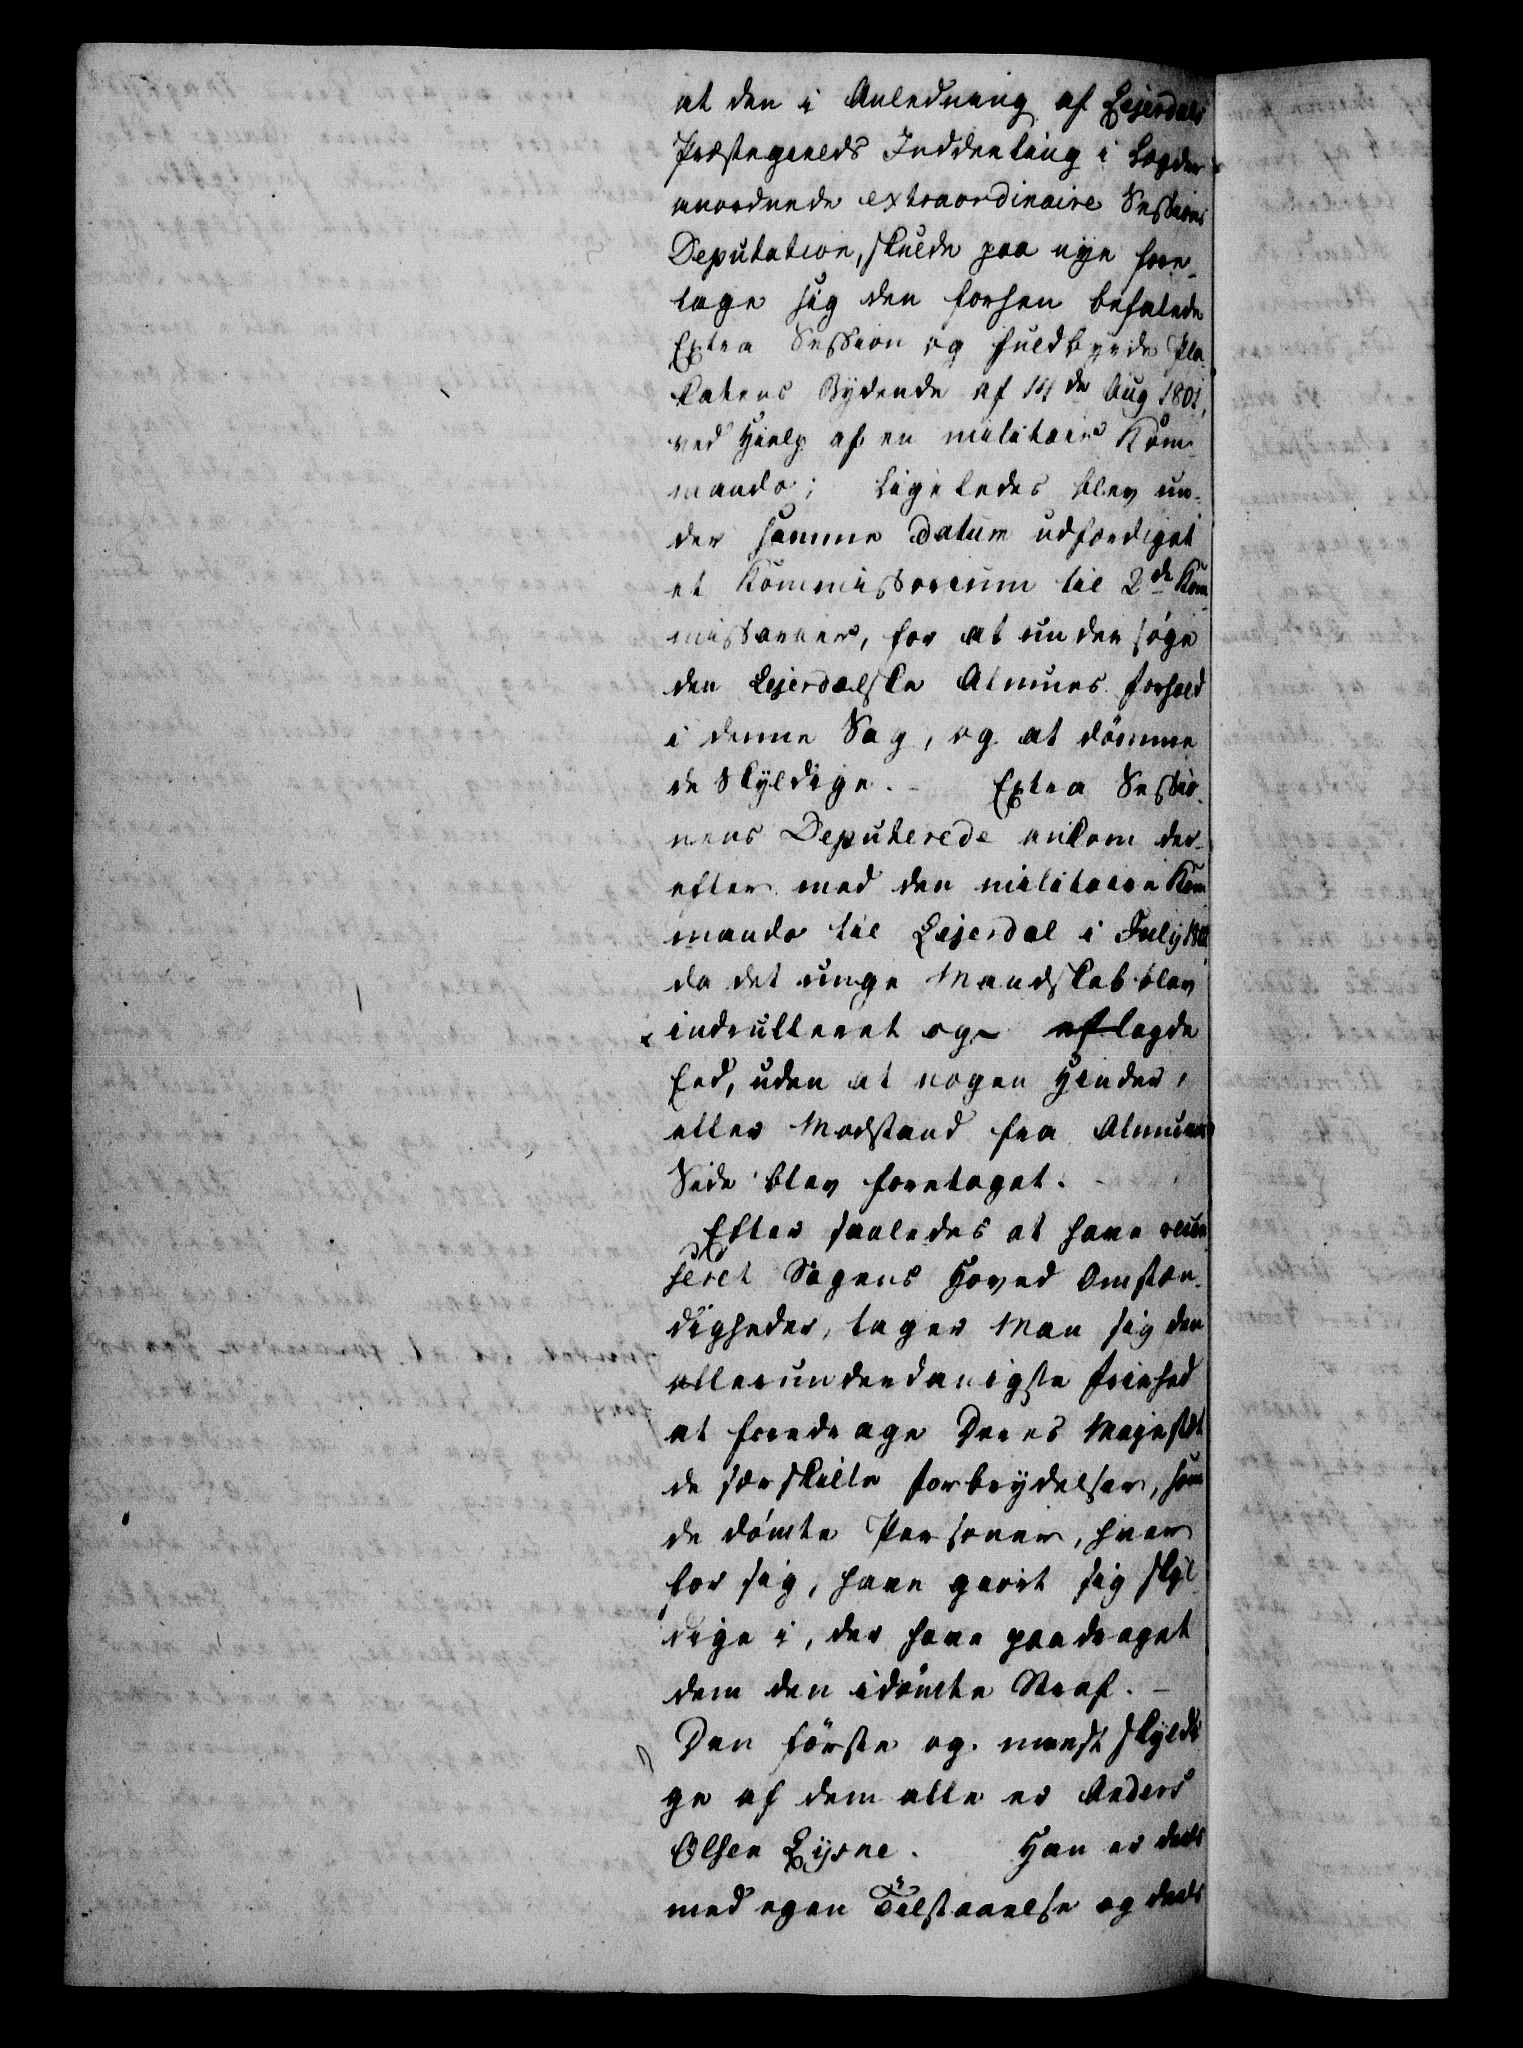 at den i Anledning af Lejerdals
Præstegields Inddeeling i Lægder
anordnede extraordinaire Sessions
Deputation, skulde paa nye fore-
tage sig den forhen befalede
Extra Session og fuldbyrde Pla-
katens Bydende af 14de Aug 1801,
ved Hielp af en militair Kom-
mando; ligeledes blev un-
der samme Datum udfærdiget
et Kommissorium til 2de Kom-
missarier, for at undersøge
den Lejerdalske Almues Forhold
i denne Sag, og at dömme
de Skyldige. - Extra Sessio-
nens Deputerede ankom der-
efter med den militaire Kom
mando til Lejerdal i July 1802
da det unge Mandskab blev
indrulleret og aflagde
Eed, uden at nogen Hinder,
eller Modstand fra Almuens
Side blev foretaget. -
Efter saaledes at have recen
seret Sagens Hoved Omstæn-
digheder, tager Man sig den
allerunderdanigste Friehed
at foredrage Deres Majestæt
de særskilte Forbrydelser, som
de dömte Personer, hver
for sig, have giort sig skyl-
dige i, der have paadraget
dem den idömte Straf. -
Den förste og meest skyldi
ge af dem alle er Anders
Olsen Lysne. Han er deels
med egen Tilstaaelse og deels